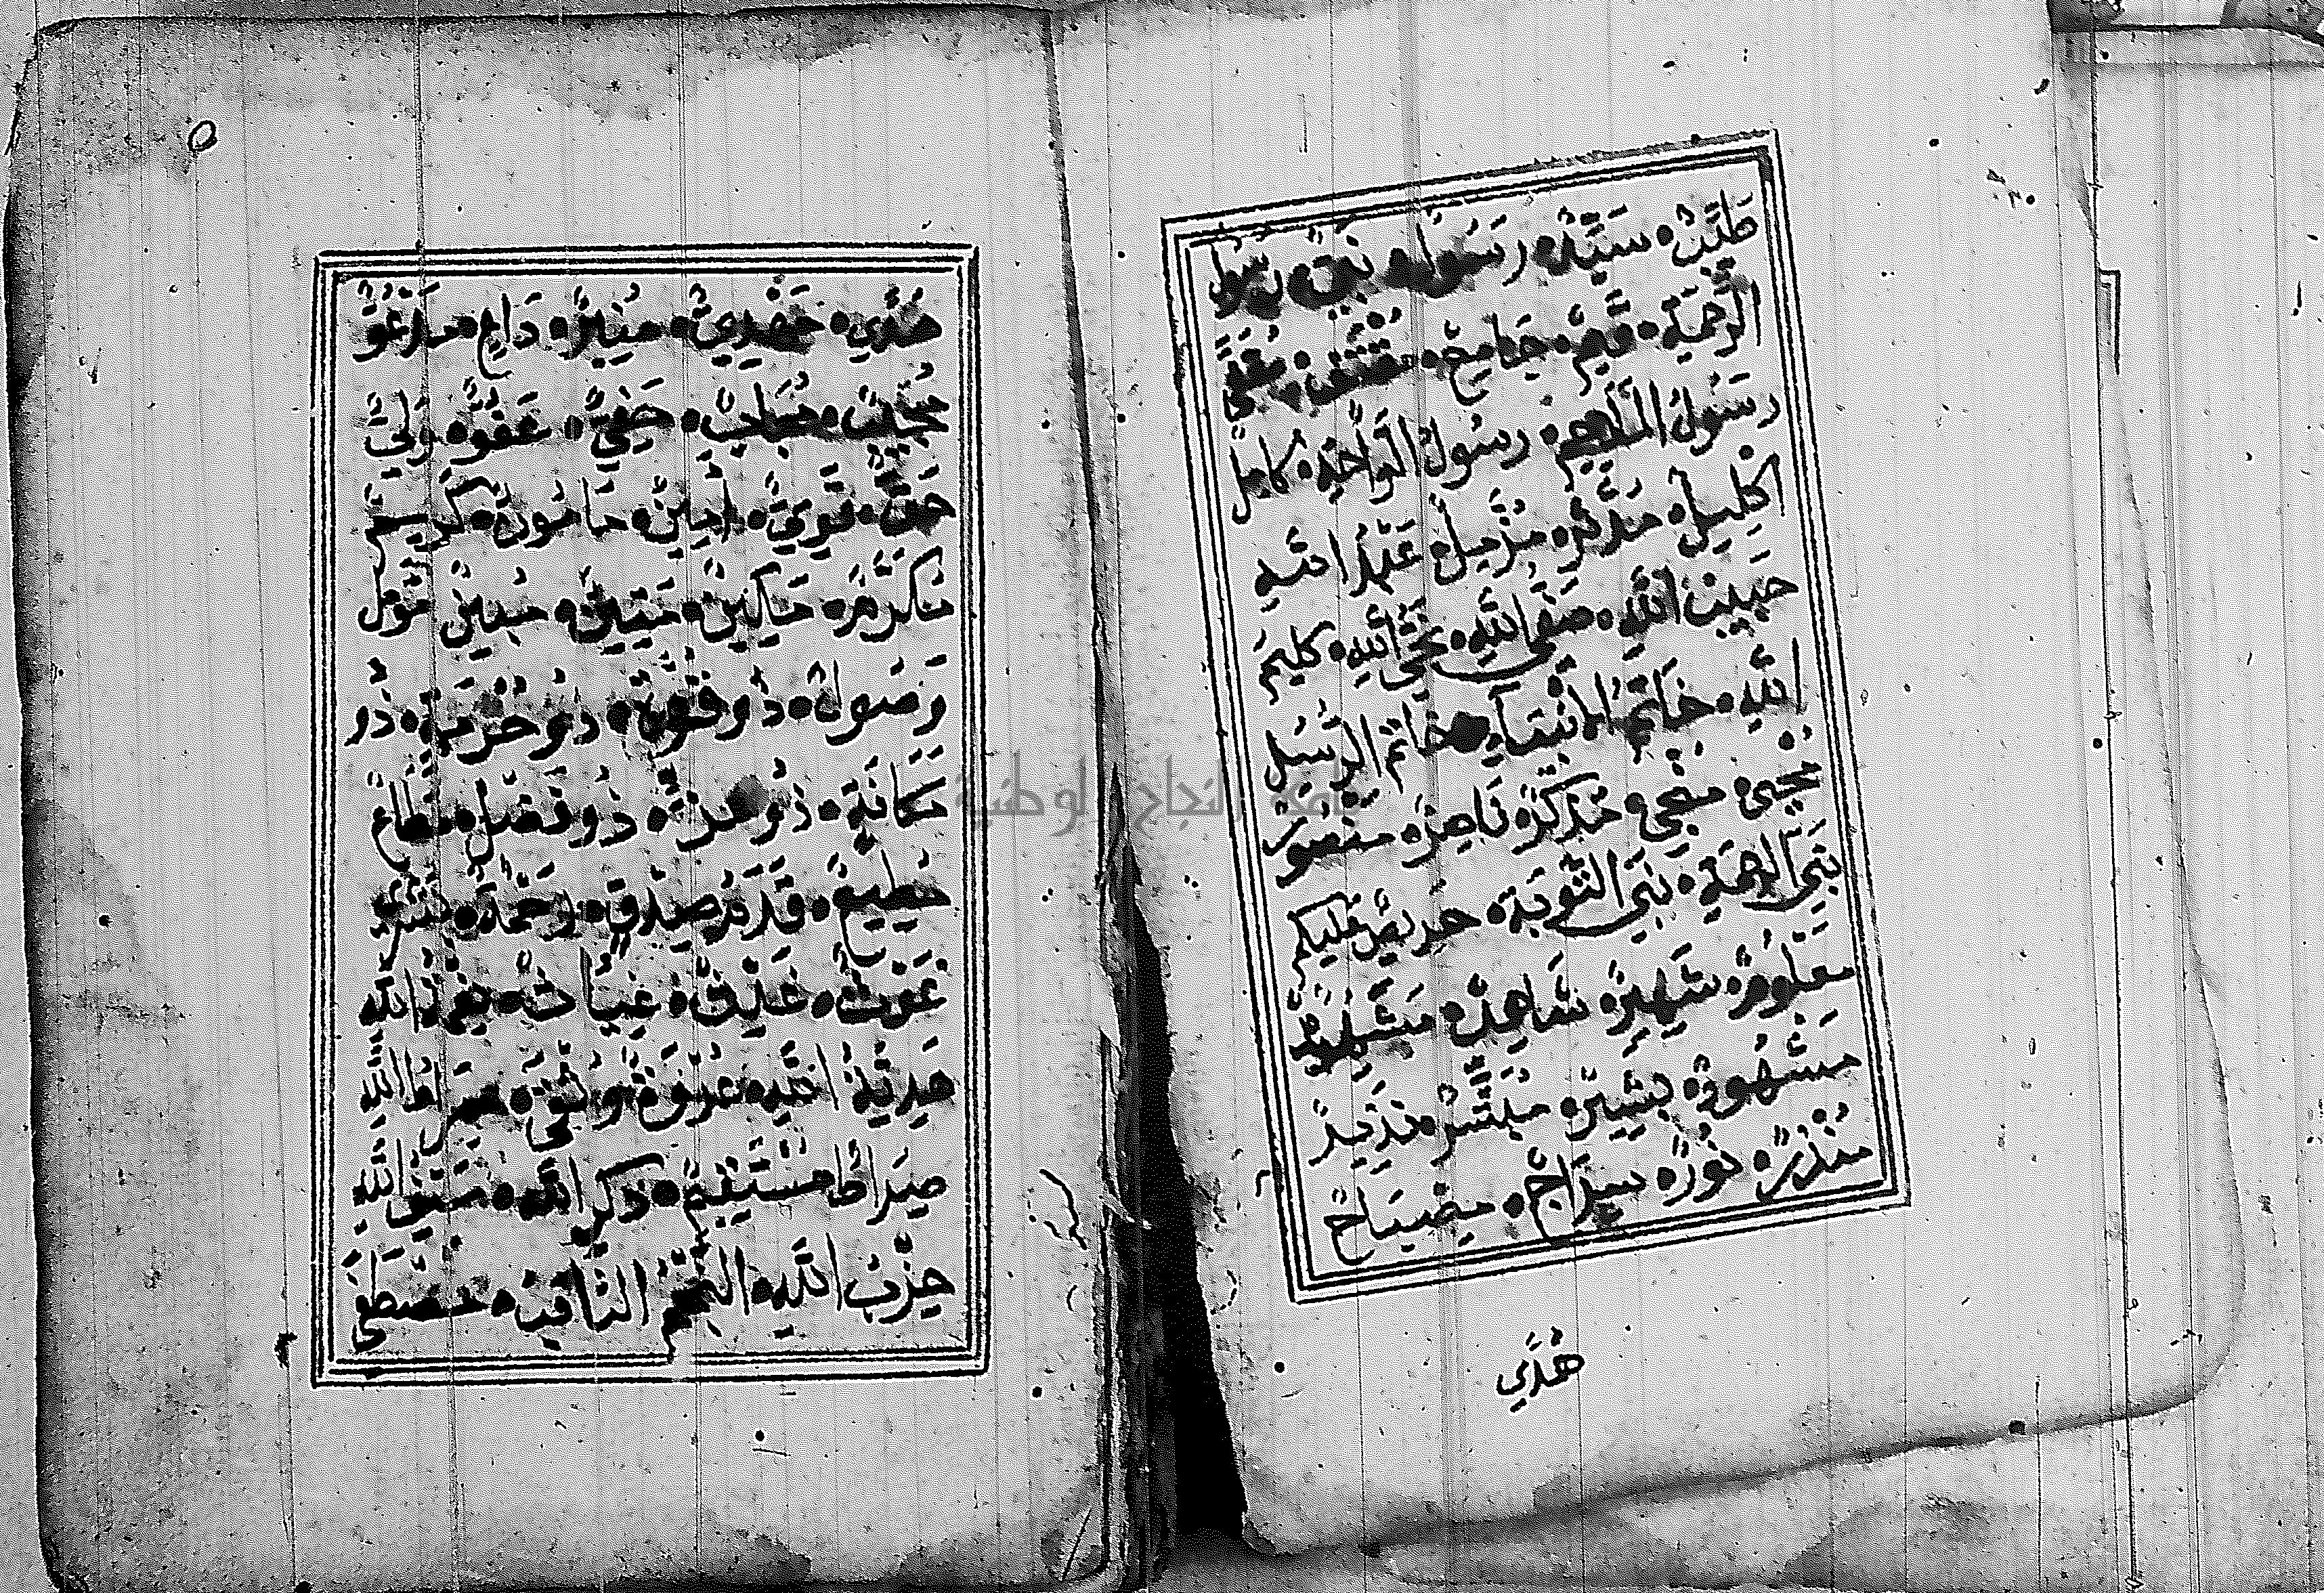 طَيِّبٌ سَيِّدٌ رَسُولٌ نَبِيٌّ رَسُولُ
الرَّحْمَةِ قَيِّمٌ جَامِعٌ مُقْتَفٍ مُقَفًّى
رَسُولُ الْمَلَاحِمِ رَسُولُ الرَّاحَةِ كَامِلٌ
اِكْلِيلٌ مُدَّثِّرٌ مُزَّمِّلٌ عَبْدُ اللهِ
حَبِيبُ اللهِ صَفِيُّ اللهِ نَجِيُّ اللهِ كَلِيمُ
اللهِ خَاتِمُ الْأَنْبِيَاءِ خَاتِمُ الرُّسُلِ
مُحْيِي مُنْجِي مُذَكِّرٌ نَاصِرٌ مَنْصُورٌ
نَبِيُّ الرَّحْمَةِ نَبِيُّ التَّوْبَةِ حَرِيصٌ عَلَيْكُمْ
مَعْلُومٌ شَهِيرٌ شَاهِدٌ مَشْهُودٌ
مَشْهُورٌ بَشِيرٌ مُبَشِّرٌ نَذِيرٌ
مُنْذِرٌ نُورٌ سِرَاجٌ مِصْبَاحٌ
هُدًي
٥
هُدًي مَهْدِيٌّ مُنِيرٌ دَاعٍ مَدْعُوٌّ
مُجِيبٌ مُجَابٌ حَفِيٌّ عَفُوٌّ وَلِيٌّ
حَقٌّ قَوِيٌّ اَمِينٌ مَأْمُونٌ كَرِيمٌ
مُكَرَّمٌ مَكِينٌ مَتِينٌ مُبِينٌ مُؤَمَّلٌ
وَصُولٌ ذُو قُوَّةٍ ذُو حُرْمَةٍ ذُو
مَكَانَةٍ ذُو عِزٍّ ذُو فَضْلٍ مُطَاعٌ
مُطِيعٌ قَدَمُ صِدْقٍ رَحْمَةٌ بُشْرَى
غَوْثٌ غَيْثٌ غِيَاثٌ نِعْمَةُ اللهِ
هَدِيَّةُ اللهِ عُرْوَةٌ وُثْقَى صِرَاطُ اللهِ
صِرَاطٌ مُسْتَقِيمٌ ذِكْرُ اللهِ سَيْفُ اللهِ
حِزْبُ اللهِ النَّجْمُ الثَّاقِبُ مُصْطَفَى
جامعة النجاح الوطنية